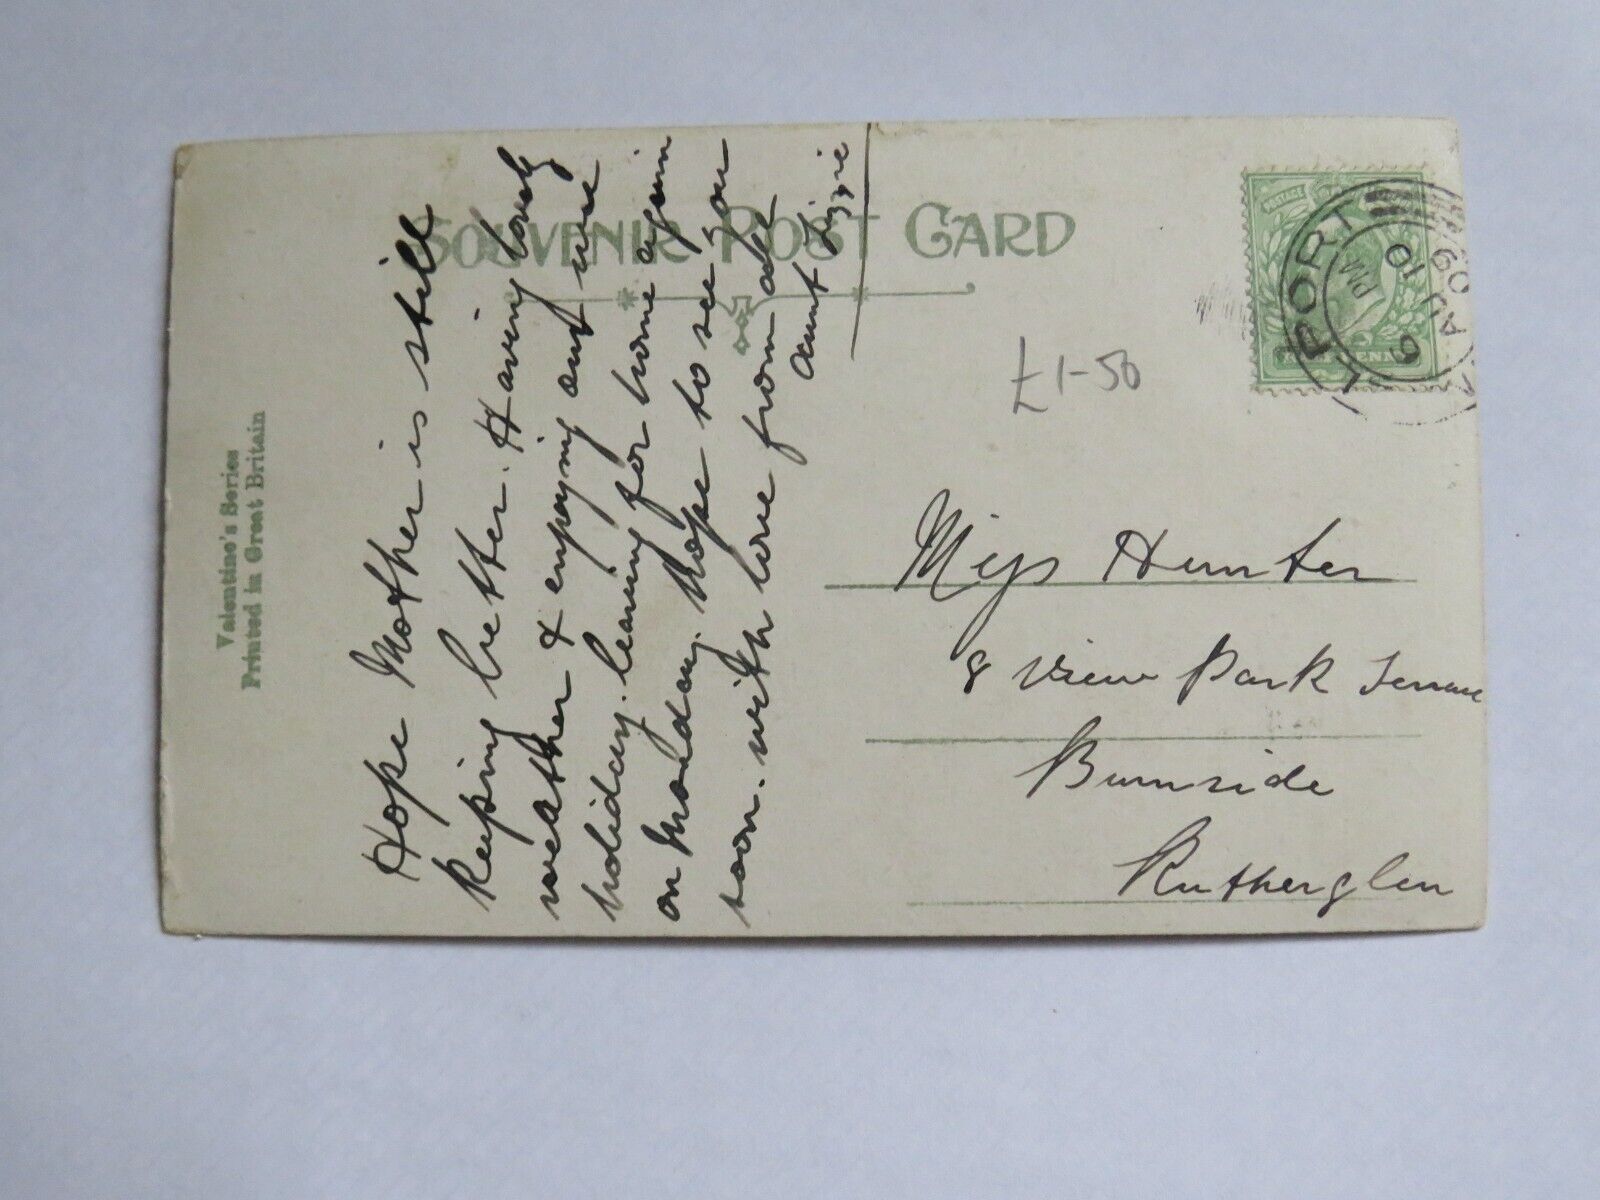 SOUVENIR POST CARD
Valentine's Series
Printed in Great Britain
Hope Mother is still
keeping better. Having lovely
weather & enjoying our
holiday. leaving for home again
on Monday. hope to see you
soon. with love from all
Aunt Lizzie
£1-50
POSTAGE
PORT
PM
10
9 AU
09
Miss Hunter
8 View Park Terrace
Burnside
Rutherglen